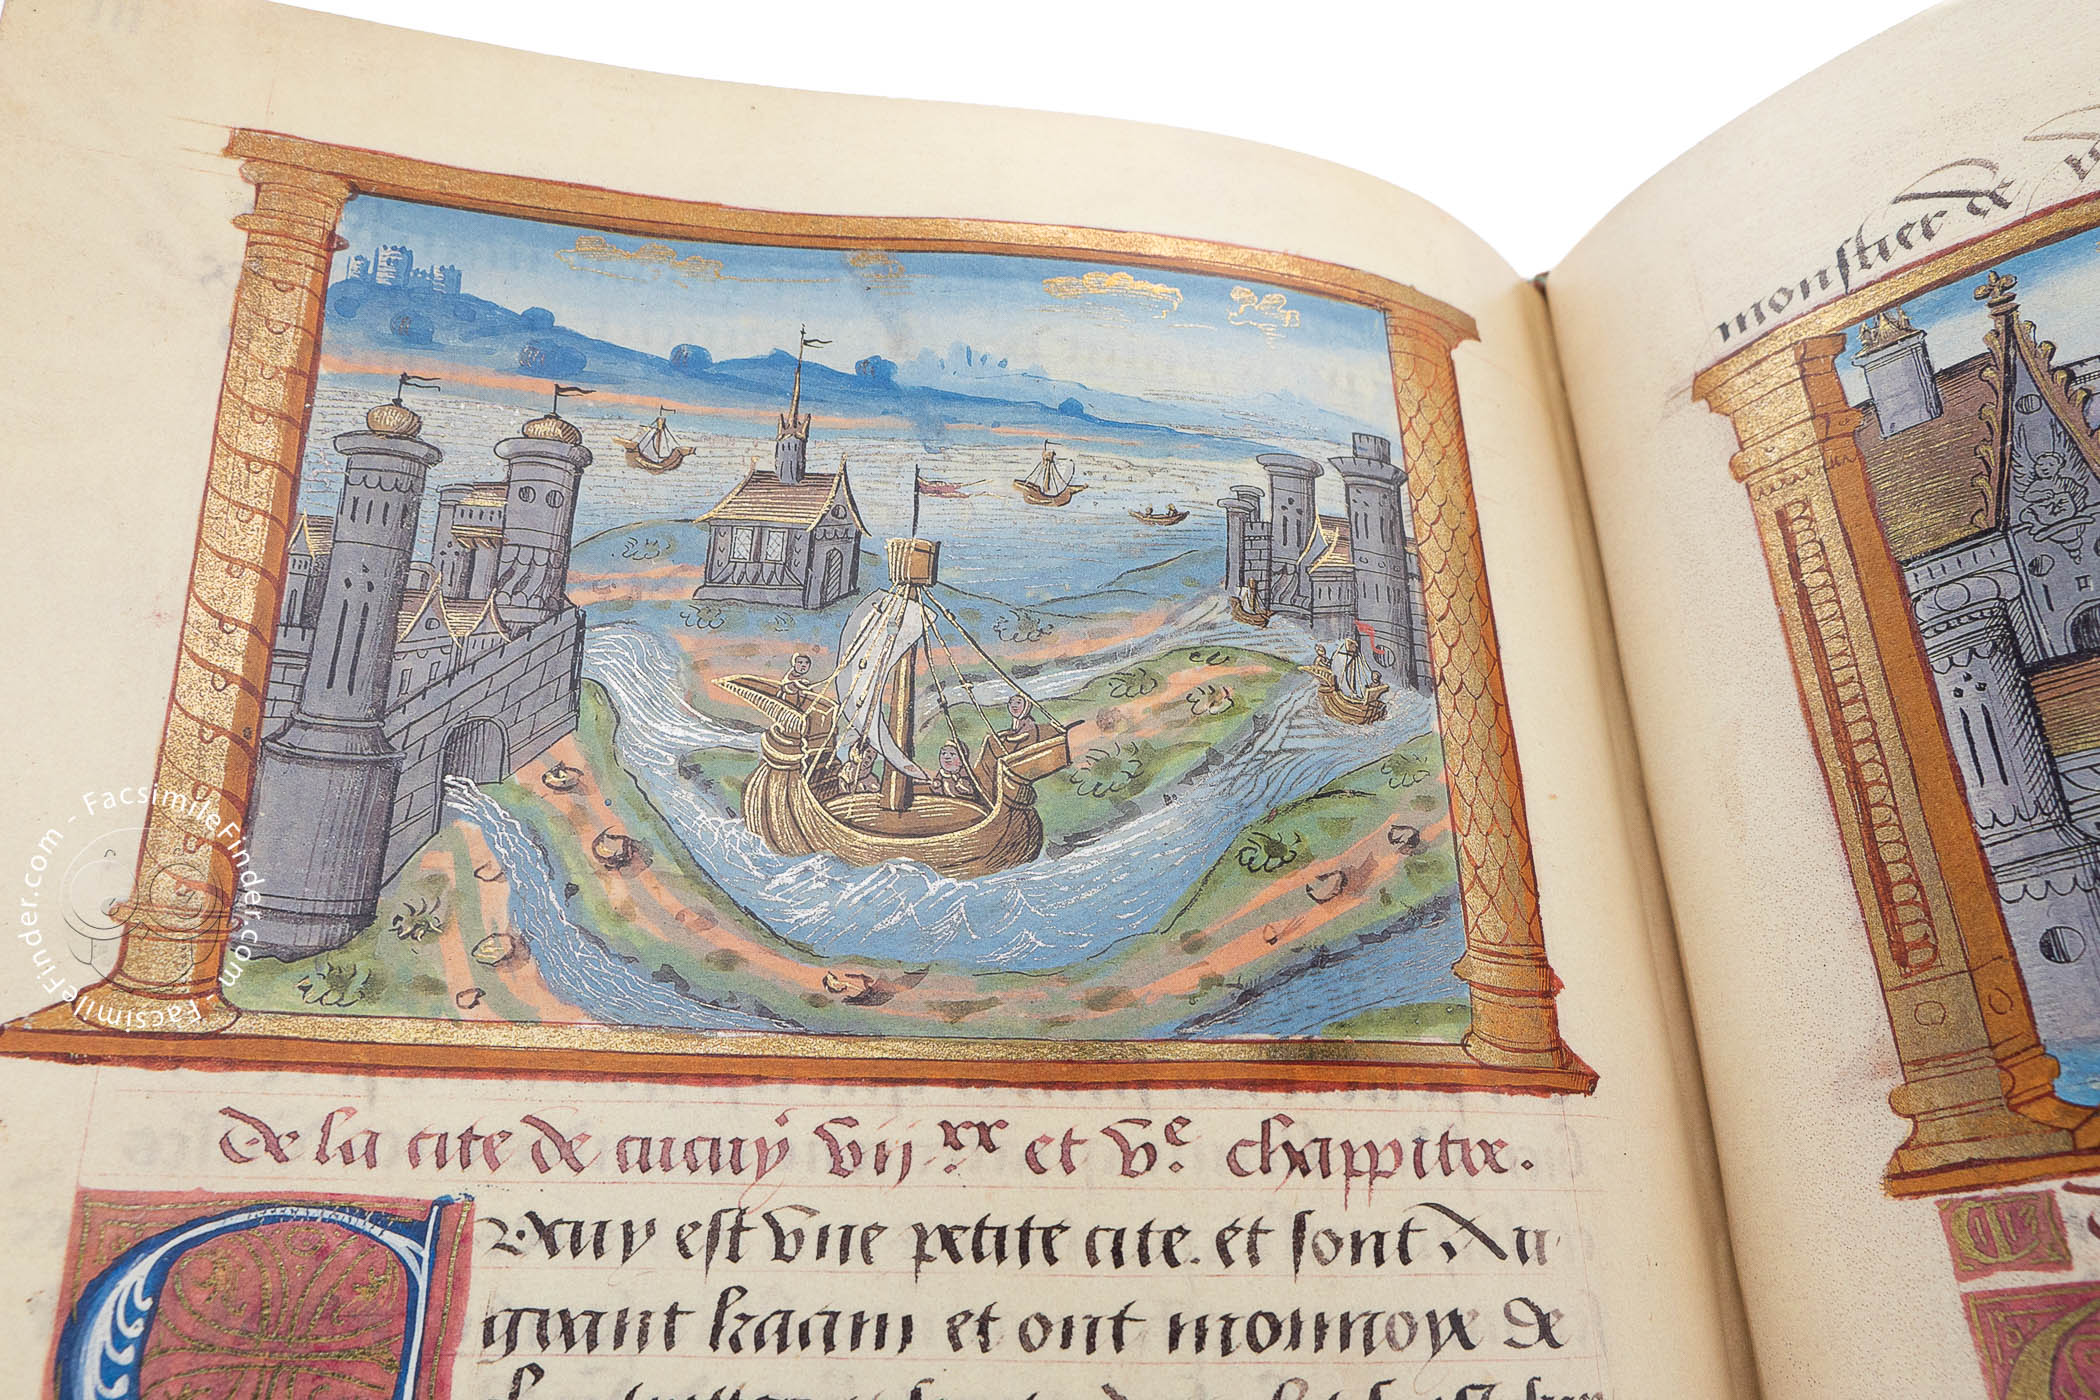 De la cite de cucuy vijxx et ve chappitre.
Cucuy est vne petite cite. et sont Au
grant kaam et ont monnoye de
monstier de
FacsimileFinder.com - FacsimileFinder.com - Facsimile